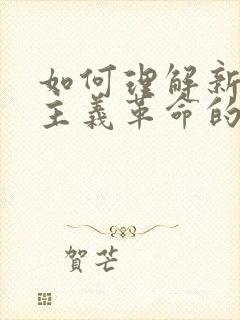 如何理解新
主义革命的
賀芒